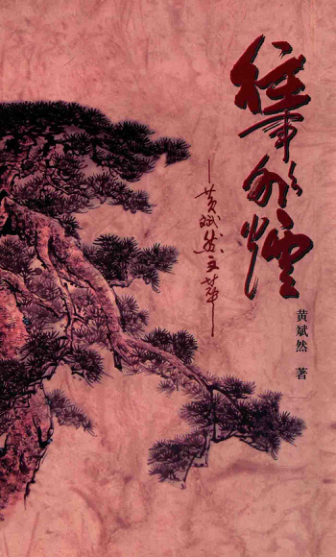 往事如煙
—黄斌然文萃—
黄斌然 著